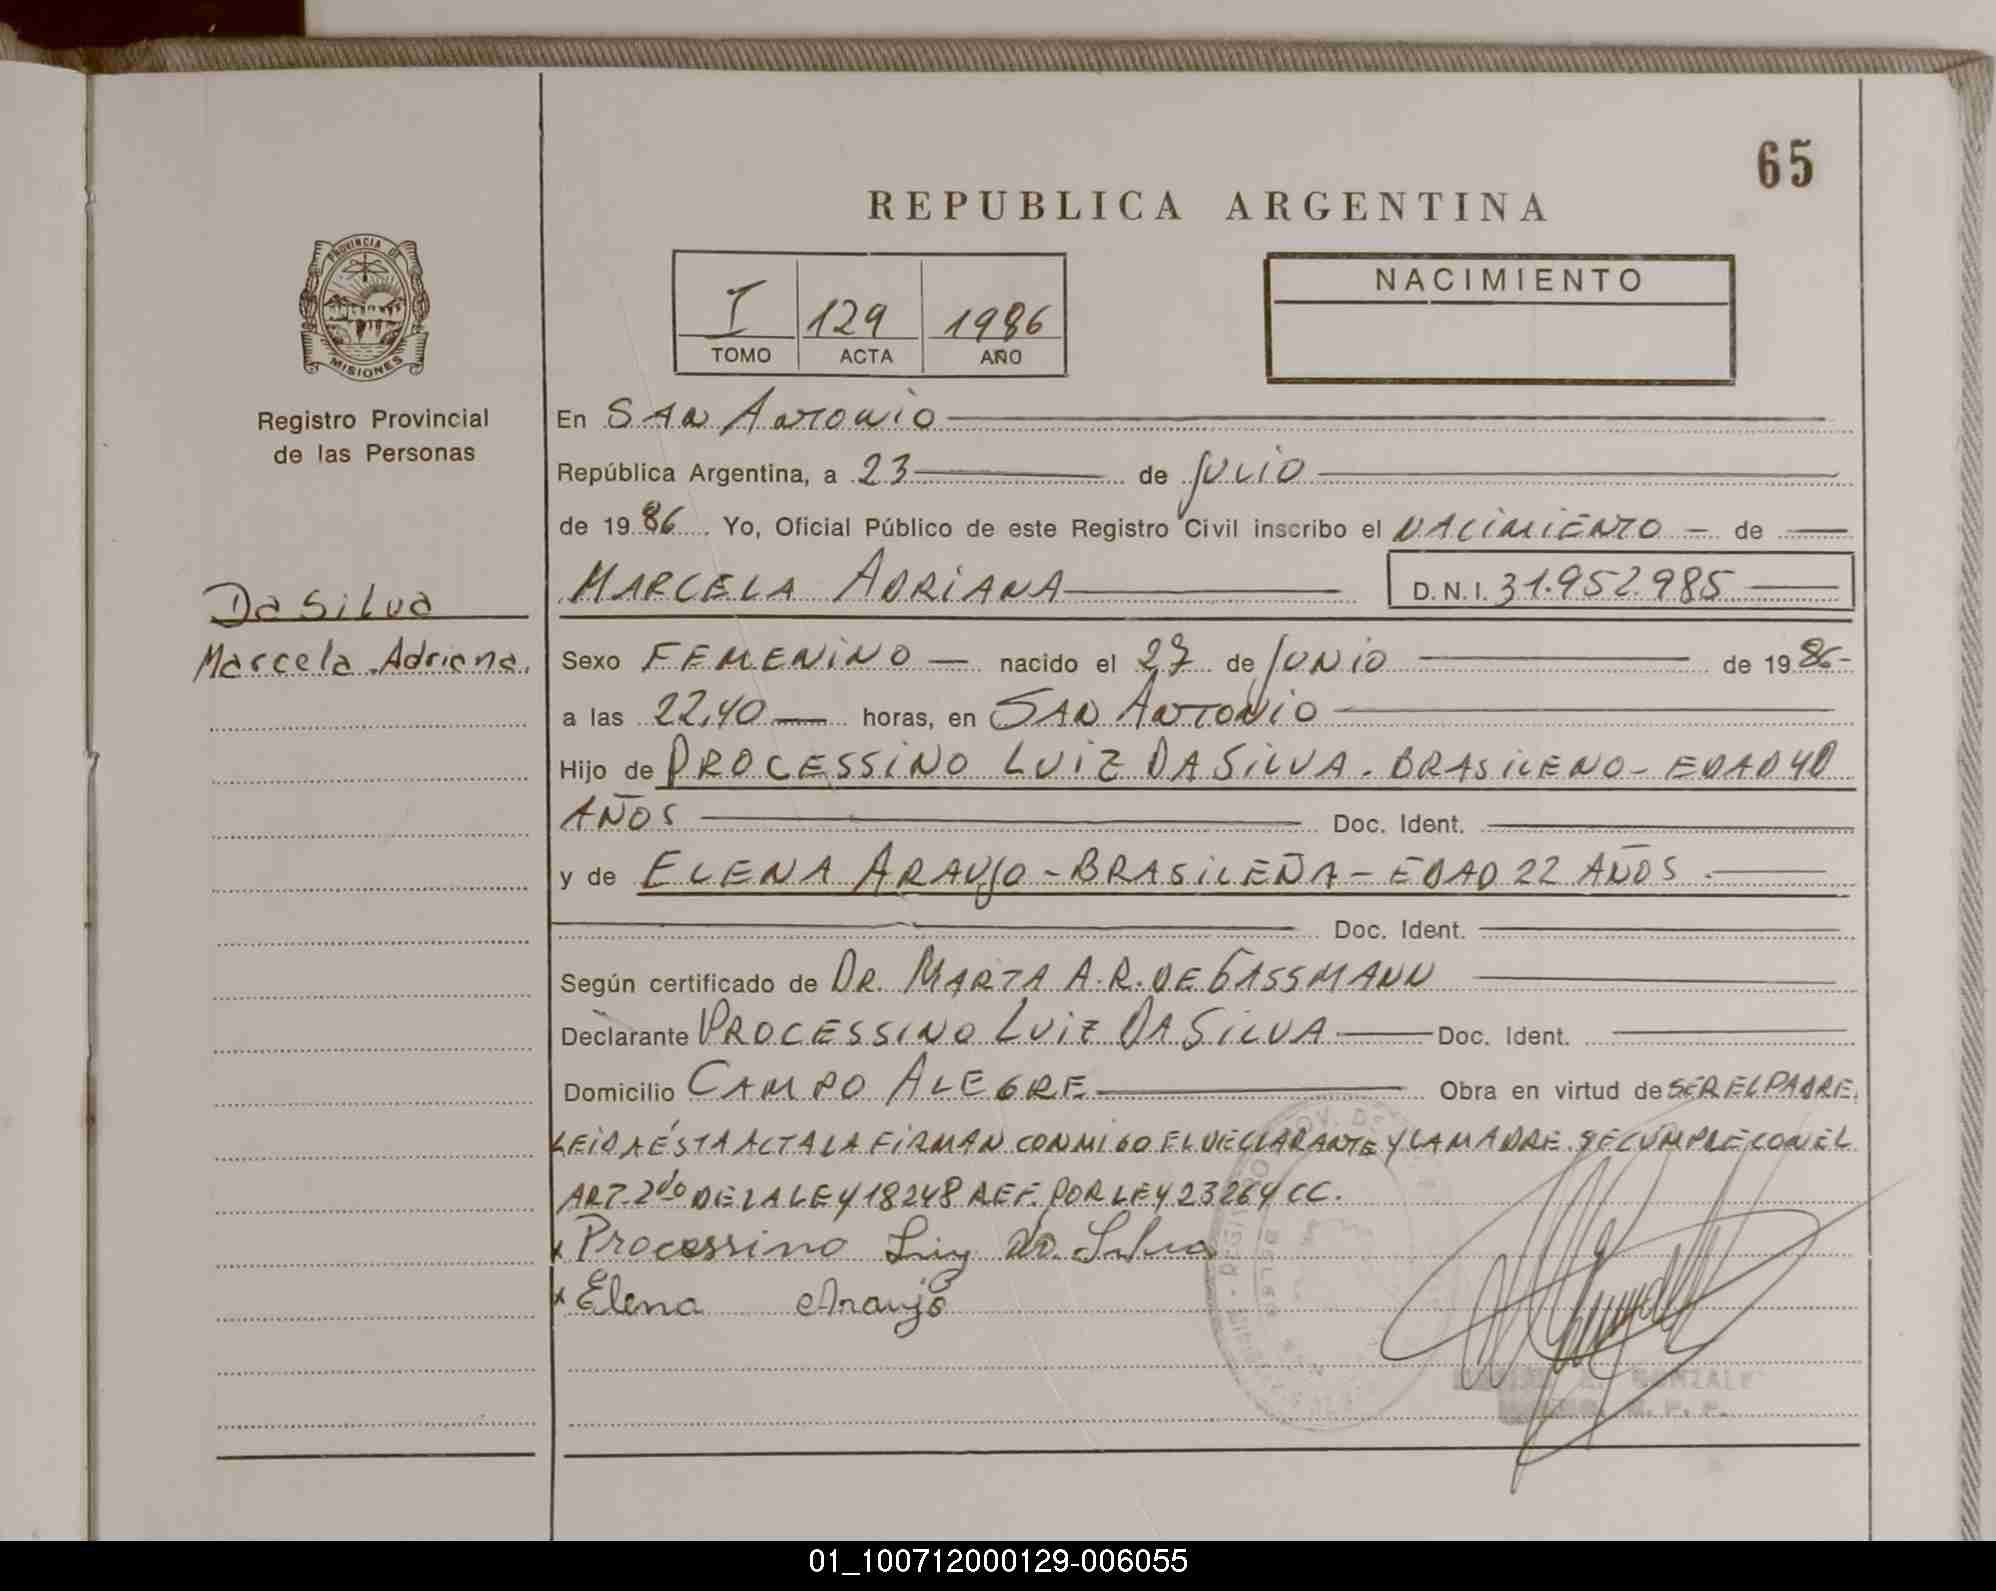 65
REPUBLICA ARGENTINA
PROVINCIA DE
MISIONES
Registro Provincial
de las Personas
Da Silva
Marcela Adriana.
I 129 1986
TOMO ACTA AÑO
NACIMIENTO
En SAN ANTONIO
República Argentina, a 23 de JULIO
de 1986 Yo, Oficial Público de este Registro Civil inscribo el NACIMIENTO de
MARCELA ADRIANA D.N.I. 31.952.985
Sexo FEMENINO nacido el 27 de JUNIO de 1986
a las 22,40 horas, en SAN ANTONIO
Hijo de PROCESSINO LUIZ DA SILVA. BRASILENO - EDAD 40
AÑOS Doc. Ident.
y de ELENA ARAUJO - BRASILEÑA - EDAD 22 AÑOS
Doc. Ident.
Según certificado de DR. MARTA A. R. DE GASSMANN
Declarante PROCESSINO LUIZ DA SILVA Doc. Ident.
Domicilio CAMPO ALEGRE Obra en virtud de SER EL PADRE.
LEIDA ÉSTA ACTA LA FIRMAN CONMIGO EL DECLARANTE Y LA MADRE. SE CUMPLE CON EL
ART. 2do DE LA LEY 18248 REF. POR LEY 23264 CC.
x Processino Luiz da Silva
x Elena Araujo
01_100712000129-006055